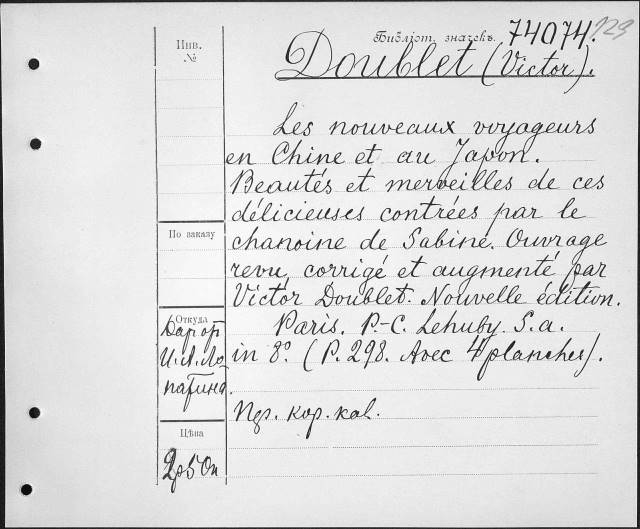 Инв.
№
Библіот. значекъ. 74074. 123
Doublet (Victor).
Les nouveaux voyageurs
en Chine et au Japon.
Beautés et merveilles de ces
délicieuses contrées par le
chanoine de Sabine. Ouvrage
revu, corrigé et augmenté par
Victor Doublet. Nouvelle édition.
Paris. P.-C. Lehuby. S.a.
in 8°. (P. 298. Avec 4 planches).
По заказу
Откуда
Дар от
И.А. Ло-
патина.
Пер. кор. кал.
Цѣна
2р50к